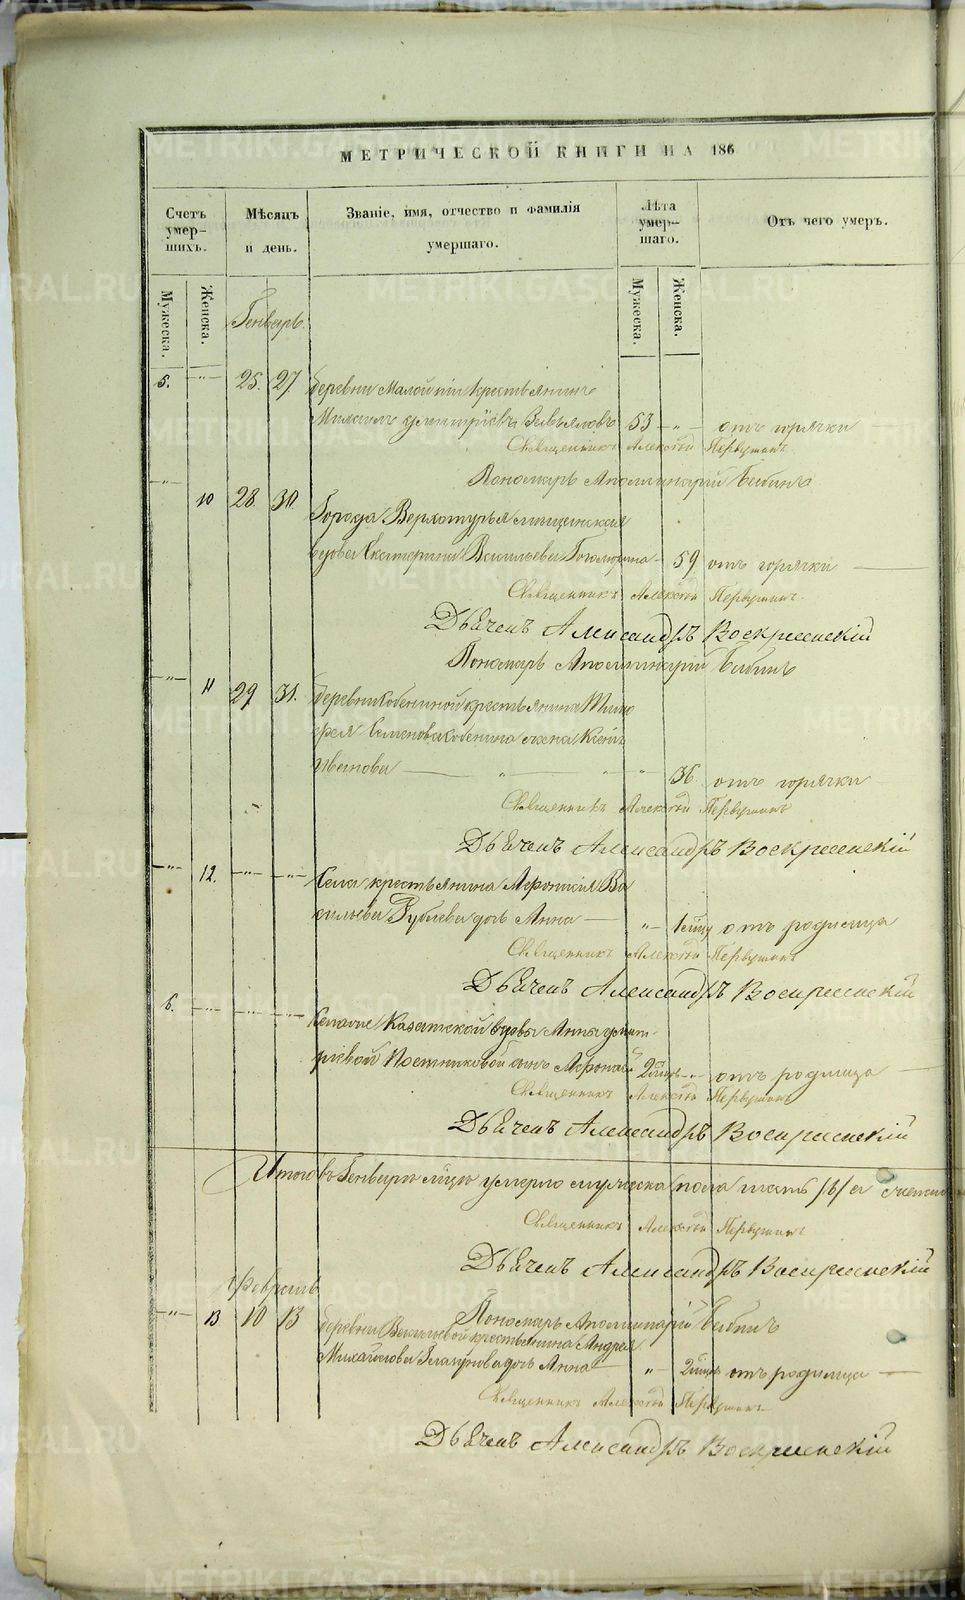 МЕТРИЧЕСКОЙ КНИГИ НА 186
Счетъ умер-шихъ.
Мѣсяцъ и день.
Званіе, имя, отчество и фамилія умершаго.
Лѣта умер-шаго.
Отъ чего умеръ.
Мужеска.
Женска.
Мужеска.
Женска.
Генварь.
5. -"- 25. 27 деревни Малой крестьянинъ
Михаилъ Димитріевъ 53 -"- отъ горячки
Священникъ Алексѣй Первушинъ
Пономарь Аполлинарій Бабинъ
-"- 10 28. 30. Города Верхотурья мѣщанская
вдова Екатерина Васильева 59 отъ горячки
Священникъ Алексѣй Первушинъ.
Дьячекъ Александръ Воскресенскій
Пономарь Аполлинарій Бабинъ
-"- 11 29. 31. деревни Кобениной крестьянина Тимо
фея Семенова Кобенина жена
Иванова 36. отъ горячки
Священникъ Алексѣй Первушинъ
Дьячекъ Александръ Воскресенскій
-"- 12. -"- -"- Села крестьянина Афонасія Ва
сильева дочь Анна -"- 1 отъ родимца
Священникъ Алексѣй Первушинъ
Дьячекъ Александръ Воскресенскій
6. -"- -"- -"- вдовы Анны Димит
ріевой Постниковой сынъ Афонасій 2 -"- отъ родимца
Священникъ Алексѣй Первушинъ
Дьячекъ Александръ Воскресенскій
Итого въ Генварѣ мцѣ умерло мужеска пола шесть /6/ а
Священникъ Алексѣй Первушинъ
Дьячекъ Александръ Воскресенскій
Пономарь Аполлинарій Бабинъ
Февраль
-"- 13 10 13 деревни крестьянина Андрея
Михайлова дочь Анна " 2 отъ родимца
Священникъ Алексѣй Первушинъ
Дьячекъ Александръ Воскресенскій
METRIKI.GASO-URAL.RU